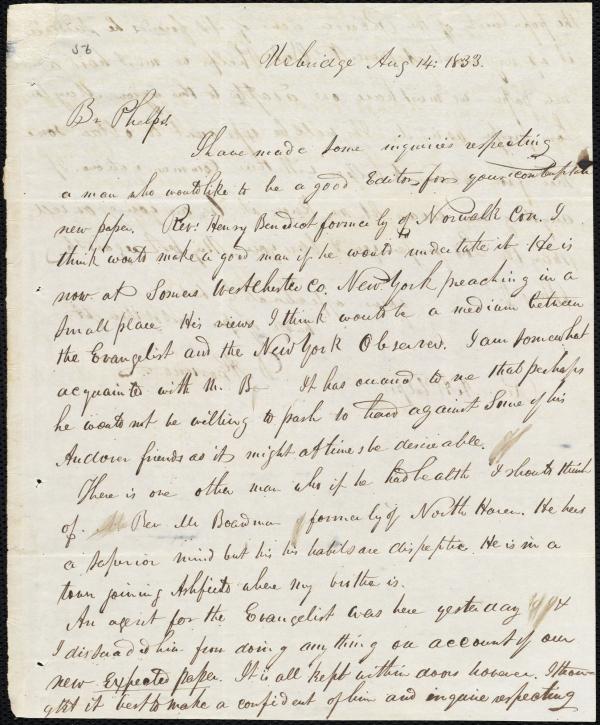 56
Uxbridge Aug 14: 1833.
Br Phelps.
I have made some inquiries respecting
a man who would like to be a good Editor for your contemplated
new paper. Rev. Henry Benedict formerly of Norwalk Con. I
think would make a good man if he would undertake it. He is
now at Somers Westchester Co. New York preaching in a
small place. His views I think would be a medium between
the Evangelist and the New York Observer. I am somewhat
acquainted with Mr. B— It has occured to me that perhaps
he would not be willing to push so hard against some of his
Andover friends as it might at times be desireable.
There is one other man who if he had health I should think
of. Rev Mr Boardman formerly of North Haven. He has
a superior mind but his his habits are dispeptic. He is in a
town joining Ashfield where my brother is.
An agent for the Evangelist was here yesterday &
I dissuaded him from doing anything on account of our
new Expected paper. It is all kept within doors however. I thou-
ght it best to make a confident of him and inquire respecting